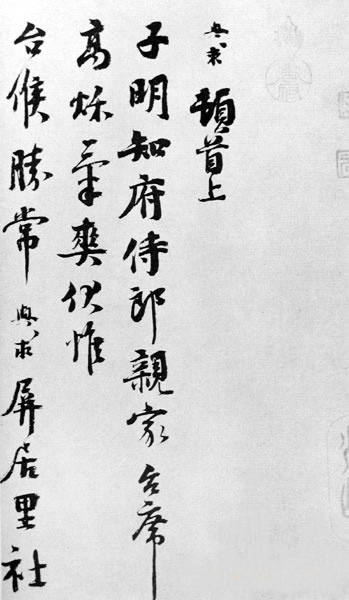 與求 頓首上
子明知府侍郎親家台席
高秋氣爽伏惟
台候勝常與求屏居里社